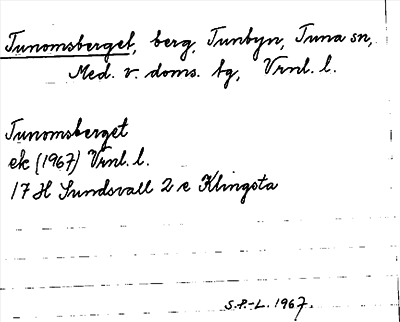 Tunomsberget, berg, Tunbyn, Tuna sn,
Med. v. doms. tg, Vrnl. l.
Tunomsberget
ek (1967) Vrnl. l.
17 H Sundsvall 2 e Klingsta
S.P.-L. 1967.